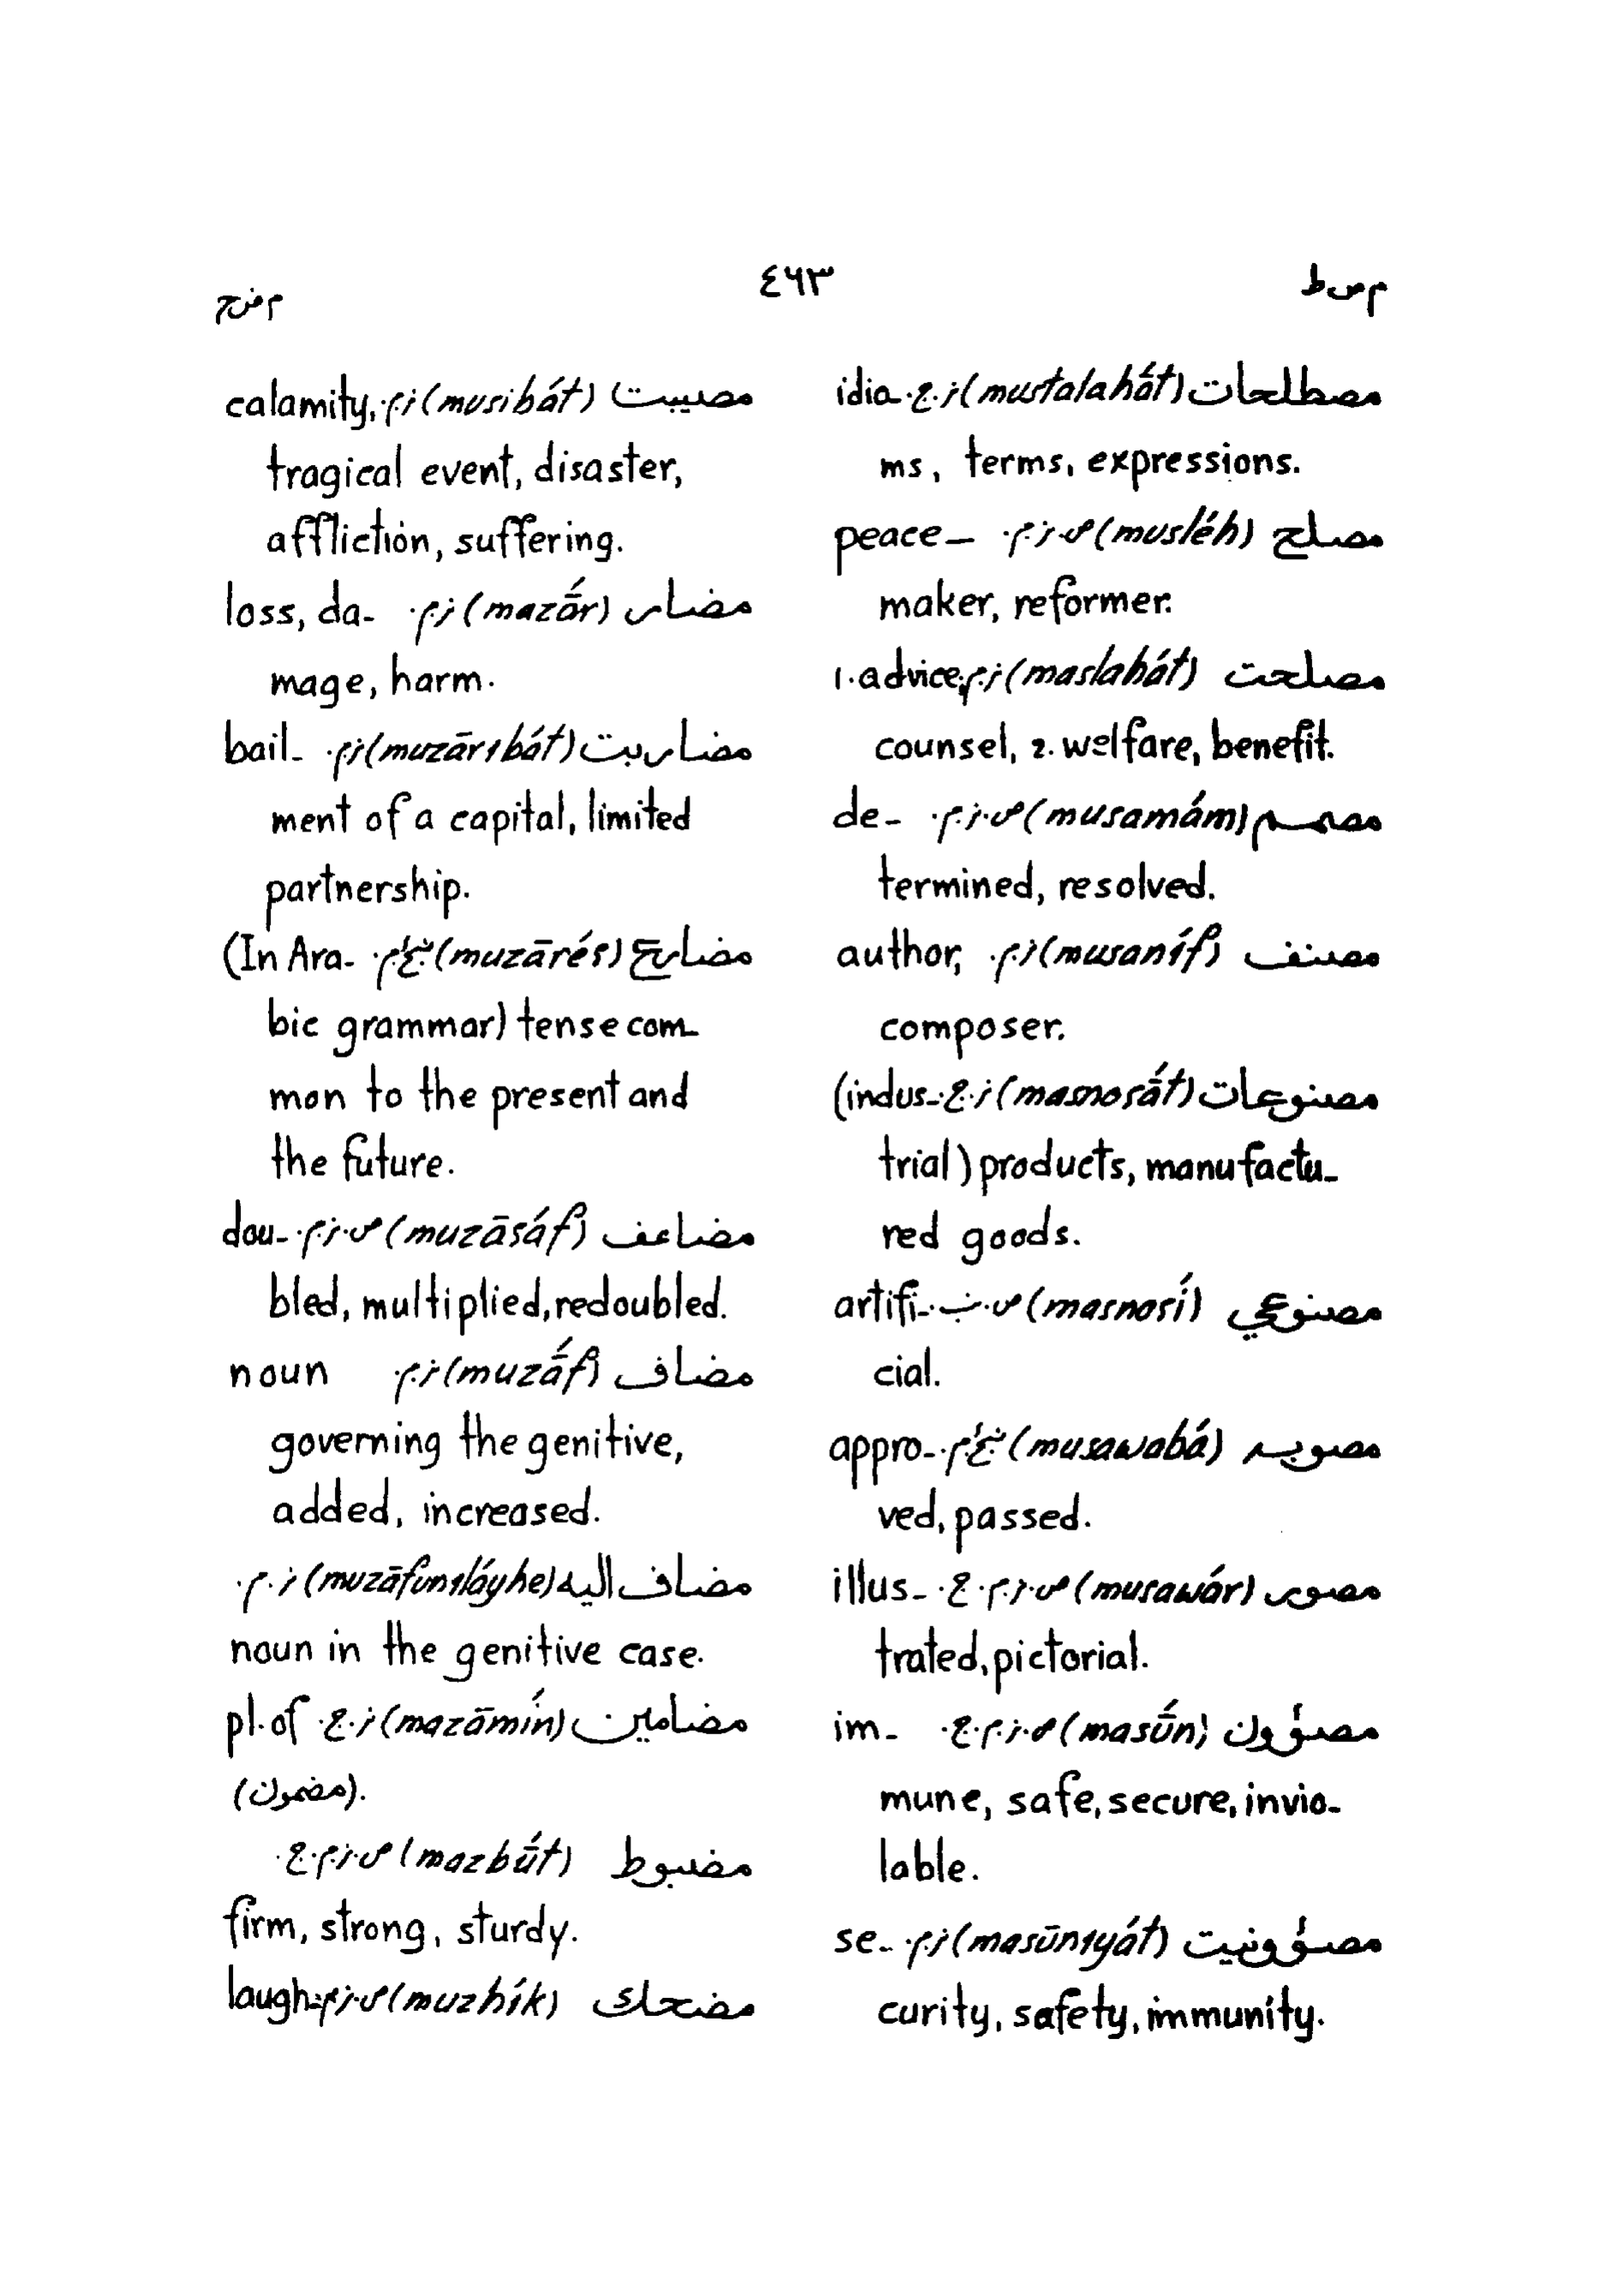 م ص ط
٤٦٣
م ض ح
مصطلحات (mustalahát) ز.ج. idio-
ms, terms, expressions.
مصلح (musléh) ص.ز.م. peace-
maker, reformer.
مصلحت (maslahát) ز.م. 1. advice,
counsel, 2. welfare, benefit.
مصمم (musamám) ص.ز.م. de-
termined, resolved.
مصنف (musaníf) ز.م. author,
composer.
مصنوعات (masnoʕā́t) ز.ج. (indus-
trial) products, manufactu-
red goods.
مصنوعي (masnoʕí) ص. artifi-
cial.
مصوبه (musawabá) appro-
ved, passed.
مصور (musawár) ص.ز.م.ج. illus-
trated, pictorial.
مصؤون (masū́n) ص.ز.م.ج. im-
mune, safe, secure, invio-
lable.
مصؤونيت (masūnɪyát) ز.م. se-
curity, safety, immunity.
مصيبت (musibát) ز.م. calamity,
tragical event, disaster,
affliction, suffering.
مضار (mazā́r) ز.م. loss, da-
mage, harm.
مضاربت (muzārɪbát) ز.م. bail-
ment of a capital, limited
partnership.
مضارع (muzāréʕ) (In Ara-
bic grammar) tense com-
mon to the present and
the future.
مضاعف (muzāʕáf) ص.ز.م. dou-
bled, multiplied, redoubled.
مضاف (muzā́f) ز.م. noun
governing the genitive,
added, increased.
مضاف اليه (muzāfunɪláyhe) ز.م.
noun in the genitive case.
مضامين (mazāmín) ز.ج. pl. of
(مضمون).
مضبوط (mazbū́t) ص.ز.م.ج.
firm, strong, sturdy.
مضحك (muzhík) ص.ز.م. laugh-